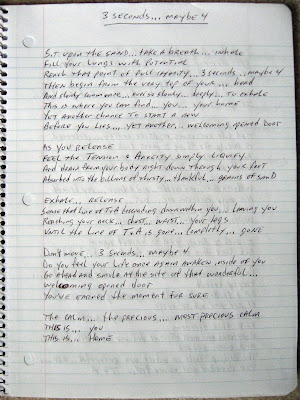 3 SECONDS... MAYBE 4
SIT UPON THE SAND... TAKE A BREATH... INHALE
FILL YOUR LUNGS WITH POTENTIAL
REACH THAT POINT OF FULL CAPACITY... 3 SECONDS... MAYBE 4
THEN BEGIN FROM THE VERY TOP OF YOUR... HEAD
AND SLOWLY COMMENCE... EVER SO SLOWLY... DEEPLY... TO EXHALE
THIS IS WHERE YOU CAN FIND... YOU... YOUR HOME
YET ANOTHER CHANCE TO START A NEW
BEFORE YOU LIES... YET ANOTHER... WELCOMING OPENED DOOR
AS YOU RELEASE
FEEL THE TENSION & ANXIETY SIMPLY LIQUIFY
AND DRAIN FROM YOUR BODY RIGHT DOWN THROUGH YOUR FEET
ABSORBED INTO THE BILLIONS OF THIRSTY... THANKFUL... GRAINS OF SAND
EXHALE... RELEASE
SENSE THAT LINE OF T&A DESCENDING DOWN WITHIN YOU... LEAVING YOU
PASSING YOUR NECK... CHEST... WAIST... YOUR LEGS
UNTIL THE LINE OF T&A IS GONE... COMPLETELY... GONE
DON'T MOVE... 3 SECONDS... MAYBE 4
DO YOU FEEL YOUR LIFE ONCE AGAIN AWAKEN INSIDE OF YOU
GO AHEAD AND SMILE AT THE SITE OF THAT WONDERFUL...
WELCOMING OPENED DOOR
YOU'VE EARNED THE MOMENT FOR SURE
THE CALM... THE PRECIOUS... MOST PRECIOUS CALM
THIS IS... YOU
THIS IS... HOME